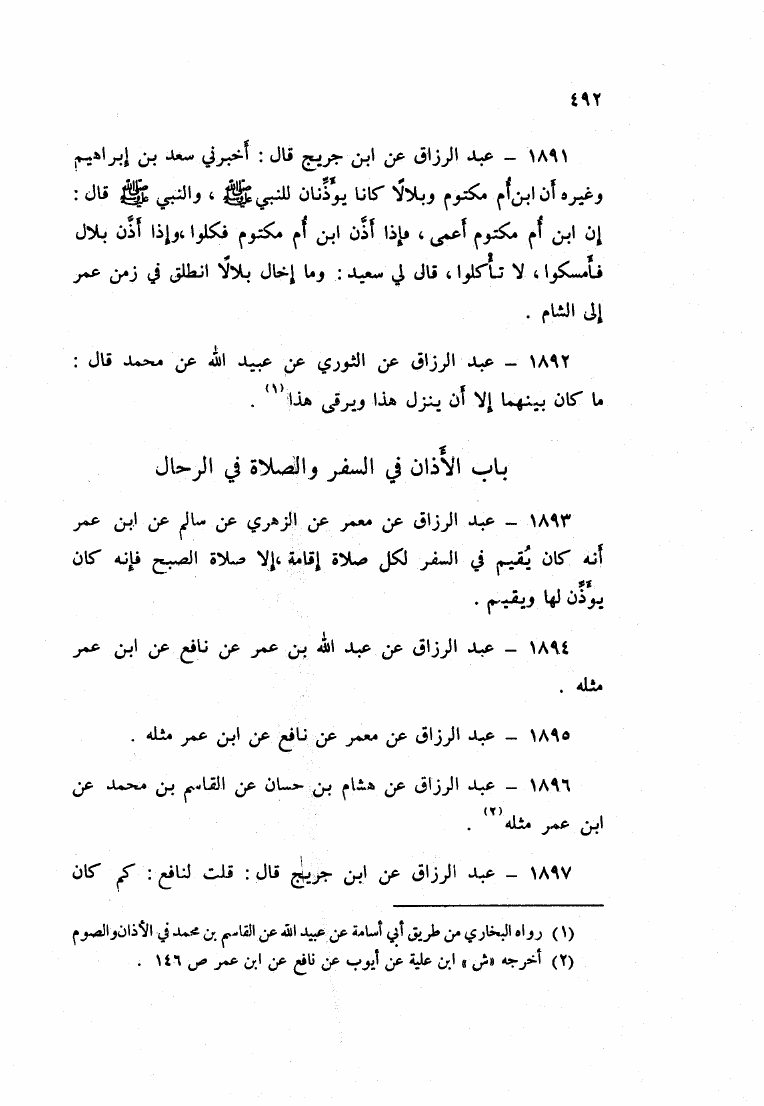 ٤٩٢
١٨٩١ – عبد الرزاق عن ابن جريج قال : أخبرني سعد بن إبراهيم
وغيره أن ابن أُم مكتوم وبلالًا كانا يؤَذِّنان للنبي ﷺ ، والنبي ﷺ قال :
إن ابن أُم مكتوم أعمى ، فإذا أذَّن ابن أُم مكتوم فكلوا ، وإذا أذَّن بلال
فأَمسكوا ، لا تأْكلوا ، قال لي سعيد : وما إخال بلالًا انطلق في زمن عمر
إلى الشام .
١٨٩٢ – عبد الرزاق عن الثوري عن عبيد الله عن محمد قال :
ما كان بينهما إلا أن ينزل هذا ويرقى هذا (١) .
باب الأَذان في السفر والصلاة في الرحال
١٨٩٣ – عبد الرزاق عن معمر عن الزهري عن سالم عن ابن عمر
أنه كان يُقيم في السفر لكل صلاة إقامة ، إلا صلاة الصبح فإنه كان
يؤَذِّن لها ويقيم .
١٨٩٤ – عبد الرزاق عن عبد الله بن عمر عن نافع عن ابن عمر
مثله .
١٨٩٥ – عبد الرزاق عن معمر عن نافع عن ابن عمر مثله .
١٨٩٦ – عبد الرزاق عن هشام بن حسان عن القاسم بن محمد عن
ابن عمر مثله (٢) .
١٨٩٧ – عبد الرزاق عن ابن جريج قال : قلت لنافع : كم كان
(١) رواه البخاري من طريق أبي أسامة عن عبيد الله عن القاسم بن محمد في الأذان والصوم
(٢) أخرجه «ش» ابن علية عن أيوب عن نافع عن ابن عمر ص ١٤٦ .